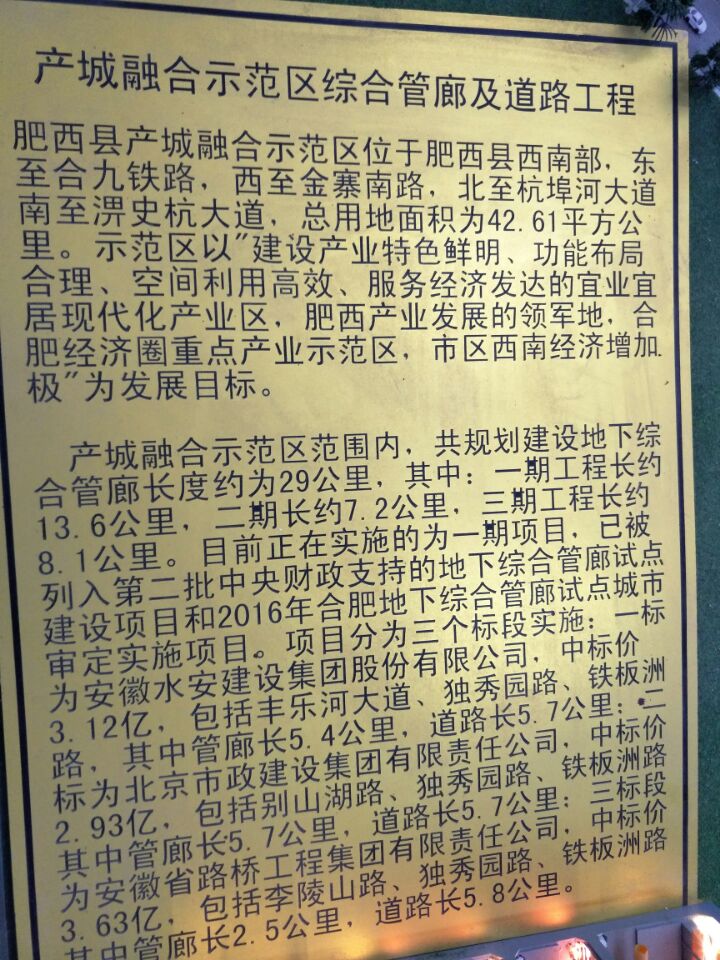 产城融合示范区综合管廊及道路工程
肥西县产城融合示范区位于肥西县西南部，东
至合九铁路，西至金寨南路，北至杭埠河大道
南至淠史杭大道，总用地面积为42.61平方公
里。示范区以"建设产业特色鲜明、功能布局
合理、空间利用高效、服务经济发达的宜业宜
居现代化产业区，肥西产业发展的领军地，合
肥经济圈重点产业示范区，市区西南经济增加
极"为发展目标。
产城融合示范区范围内，共规划建设地下综
合管廊长度约为29公里，其中：一期工程长约
13.6公里，二期长约7.2公里，三期工程长约
8.1公里。目前正在实施的为一期项目，已被
列入第二批中央财政支持的地下综合管廊试点
建设项目和2016年合肥地下综合管廊试点城市
审定实施项目。项目分为三个标段实施：一标
为安徽水安建设集团股份有限公司，中标价
3.12亿，包括丰乐河大道、独秀园路、铁板洲
路，其中管廊长5.4公里，道路长5.7公里；二
标为北京市政建设集团有限责任公司，中标价
2.93亿，包括别山湖路、独秀园路、铁板洲路
其中管廊长5.7公里，道路长5.7公里；三标段
为安徽省路桥工程集团有限责任公司，中标价
3.63亿，包括李陵山路、独秀园路、铁板洲路
其中管廊长2.5公里，道路长5.8公里。